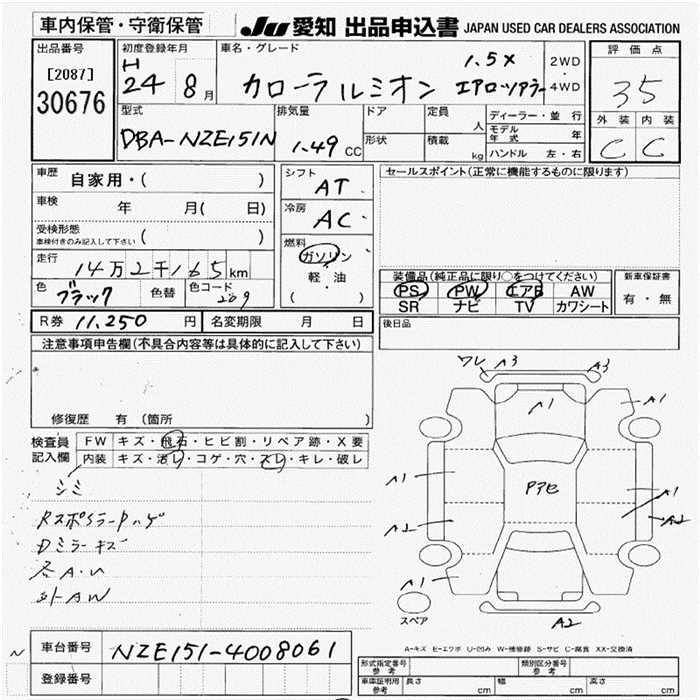 車内保管・守衛保管
JU 愛知 出品申込書 JAPAN USED CAR DEALERS ASSOCIATION
出品番号
[2087]
30676
初度登録年月
H
24 8 月
車名・グレード
カローラルミオン
1.5X
エアロツアラー
2WD
・
4WD
評価点
35
外装 内装
C C
型式
DBA-NZE151N
排気量
1.49 CC
ドア
形状
定員
人
積載
kg
ディーラー・並行
モデル年式 年
ハンドル 左・右
車歴 自家用・( )
車検 年 月( 日)
受検形態
車検付きのみ記入して下さい ( )
走行 14万2千165km
色 ブラック 色替 色コード 209
シフト
AT
冷房
AC
燃料
ガソリン
・
軽・油
( )
セールスポイント(正常に機能するものに限ります)
装備品(純正品に限り○をつけてください)
PS PW エアB AW
SR ナビ TV カワシート
新車保証書
有・無
R券 11,250 円 名変期限 月 日
後日品
注意事項申告欄(不具合内容等は具体的に記入して下さい)
修復歴 有(箇所 )
検査員
記入欄
FW キズ・飛石・ヒビ割・リペア跡・X要
内装 キズ・汚レ・コゲ・穴・スレ・キレ・破レ
シミ
RスポイラーPハゲ
Dミラーキズ
外AW
ワレ A3 A3
A1 A1
A1 A1
Pアセ
A2 A2
A1
スペア A2
A-キズ E-エクボ U-凹み W-補修跡 S-サビ C-腐食 XX-交換済
車台番号 NZE151-4008061
登録番号
N
形式指定番号
参考
類別区分番号
参考
車庫証明用
参考
長さ cm 幅 cm 高さ cm